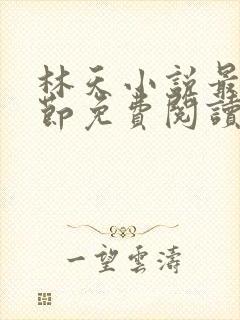 林天小說最
節免費閱讀
一望雲濤